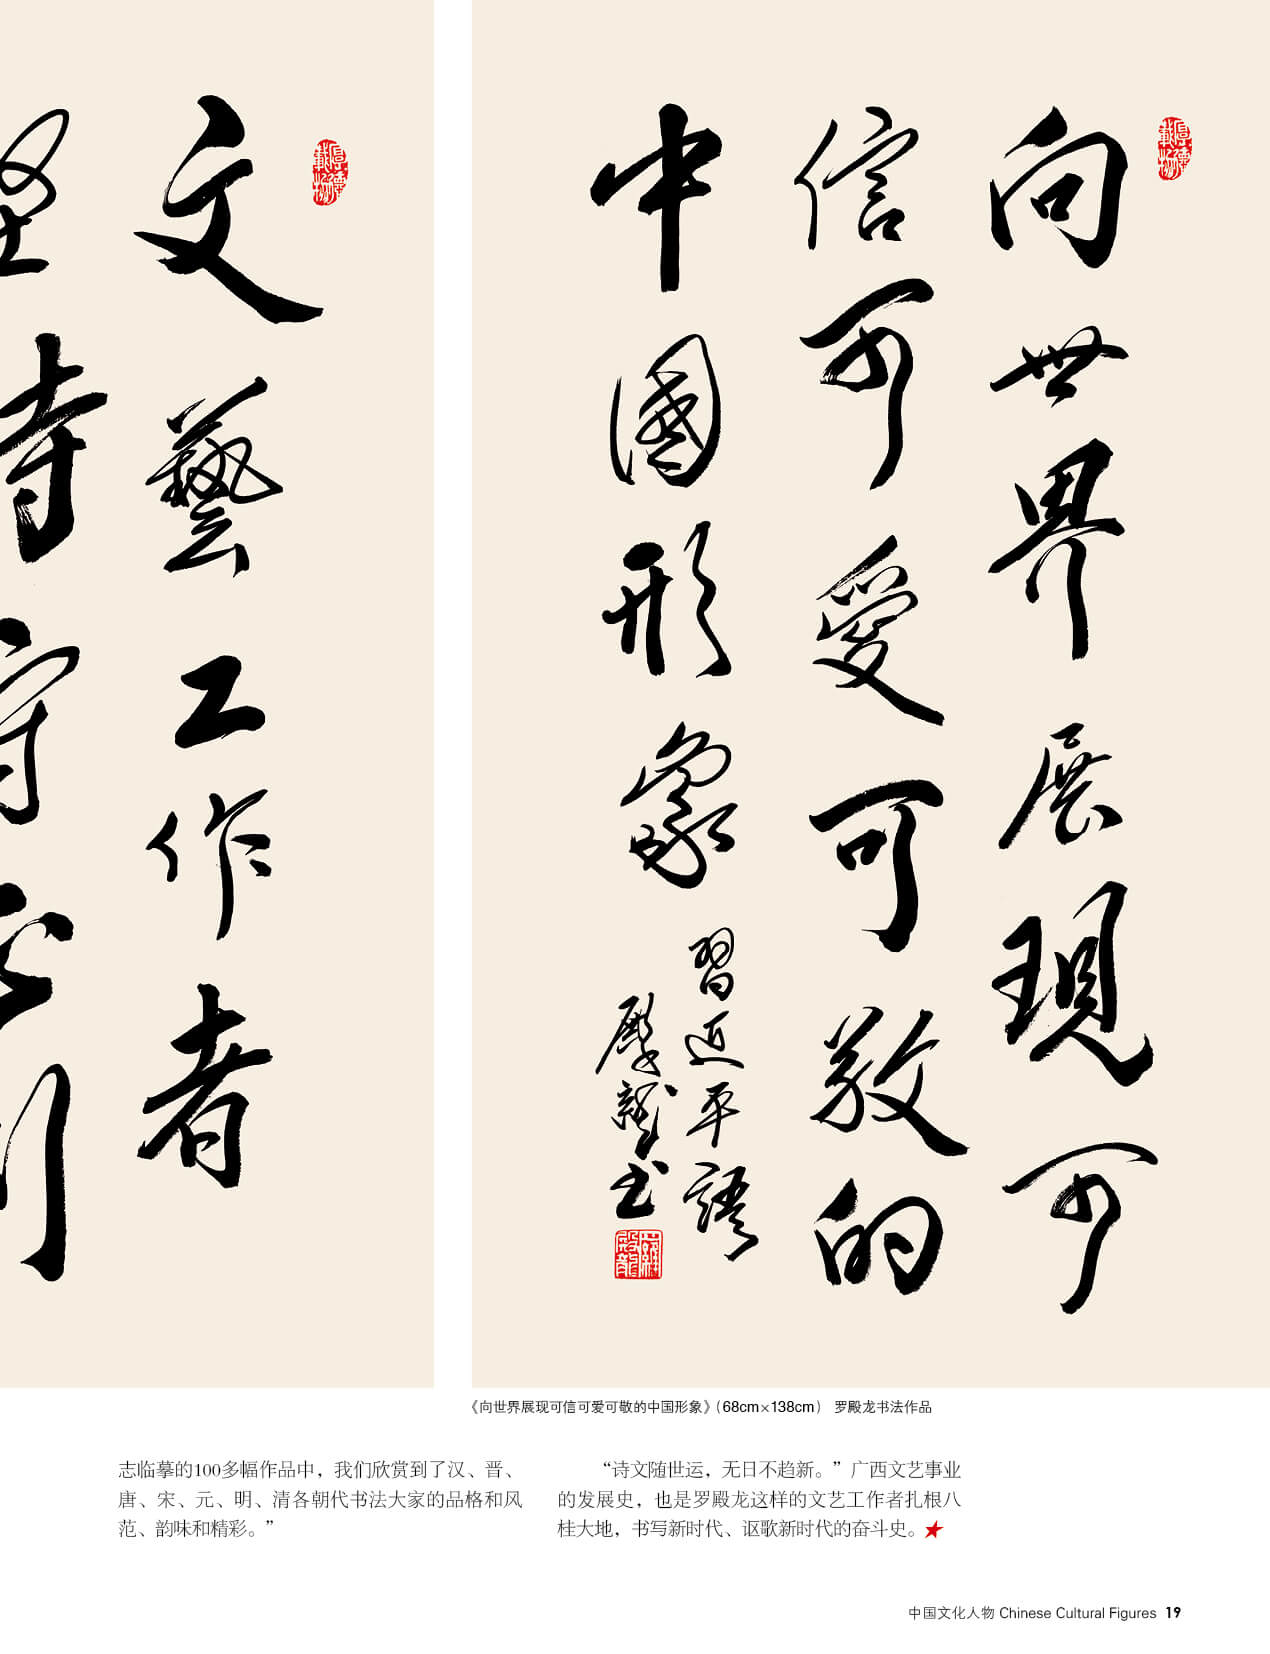 厚德載物
向世界展現可
信可愛可敬的
中國形象
習近平語
殿龍书
羅殿龍
厚德載物
文藝工作者
《向世界展现可信可爱可敬的中国形象》（68cm×138cm） 罗殿龙书法作品
志临摹的100多幅作品中，我们欣赏到了汉、晋、
唐、宋、元、明、清各朝代书法大家的品格和风
范、韵味和精彩。”
“诗文随世运，无日不趋新。”广西文艺事业
的发展史，也是罗殿龙这样的文艺工作者扎根八
桂大地，书写新时代、讴歌新时代的奋斗史。
中国文化人物 Chinese Cultural Figures 19